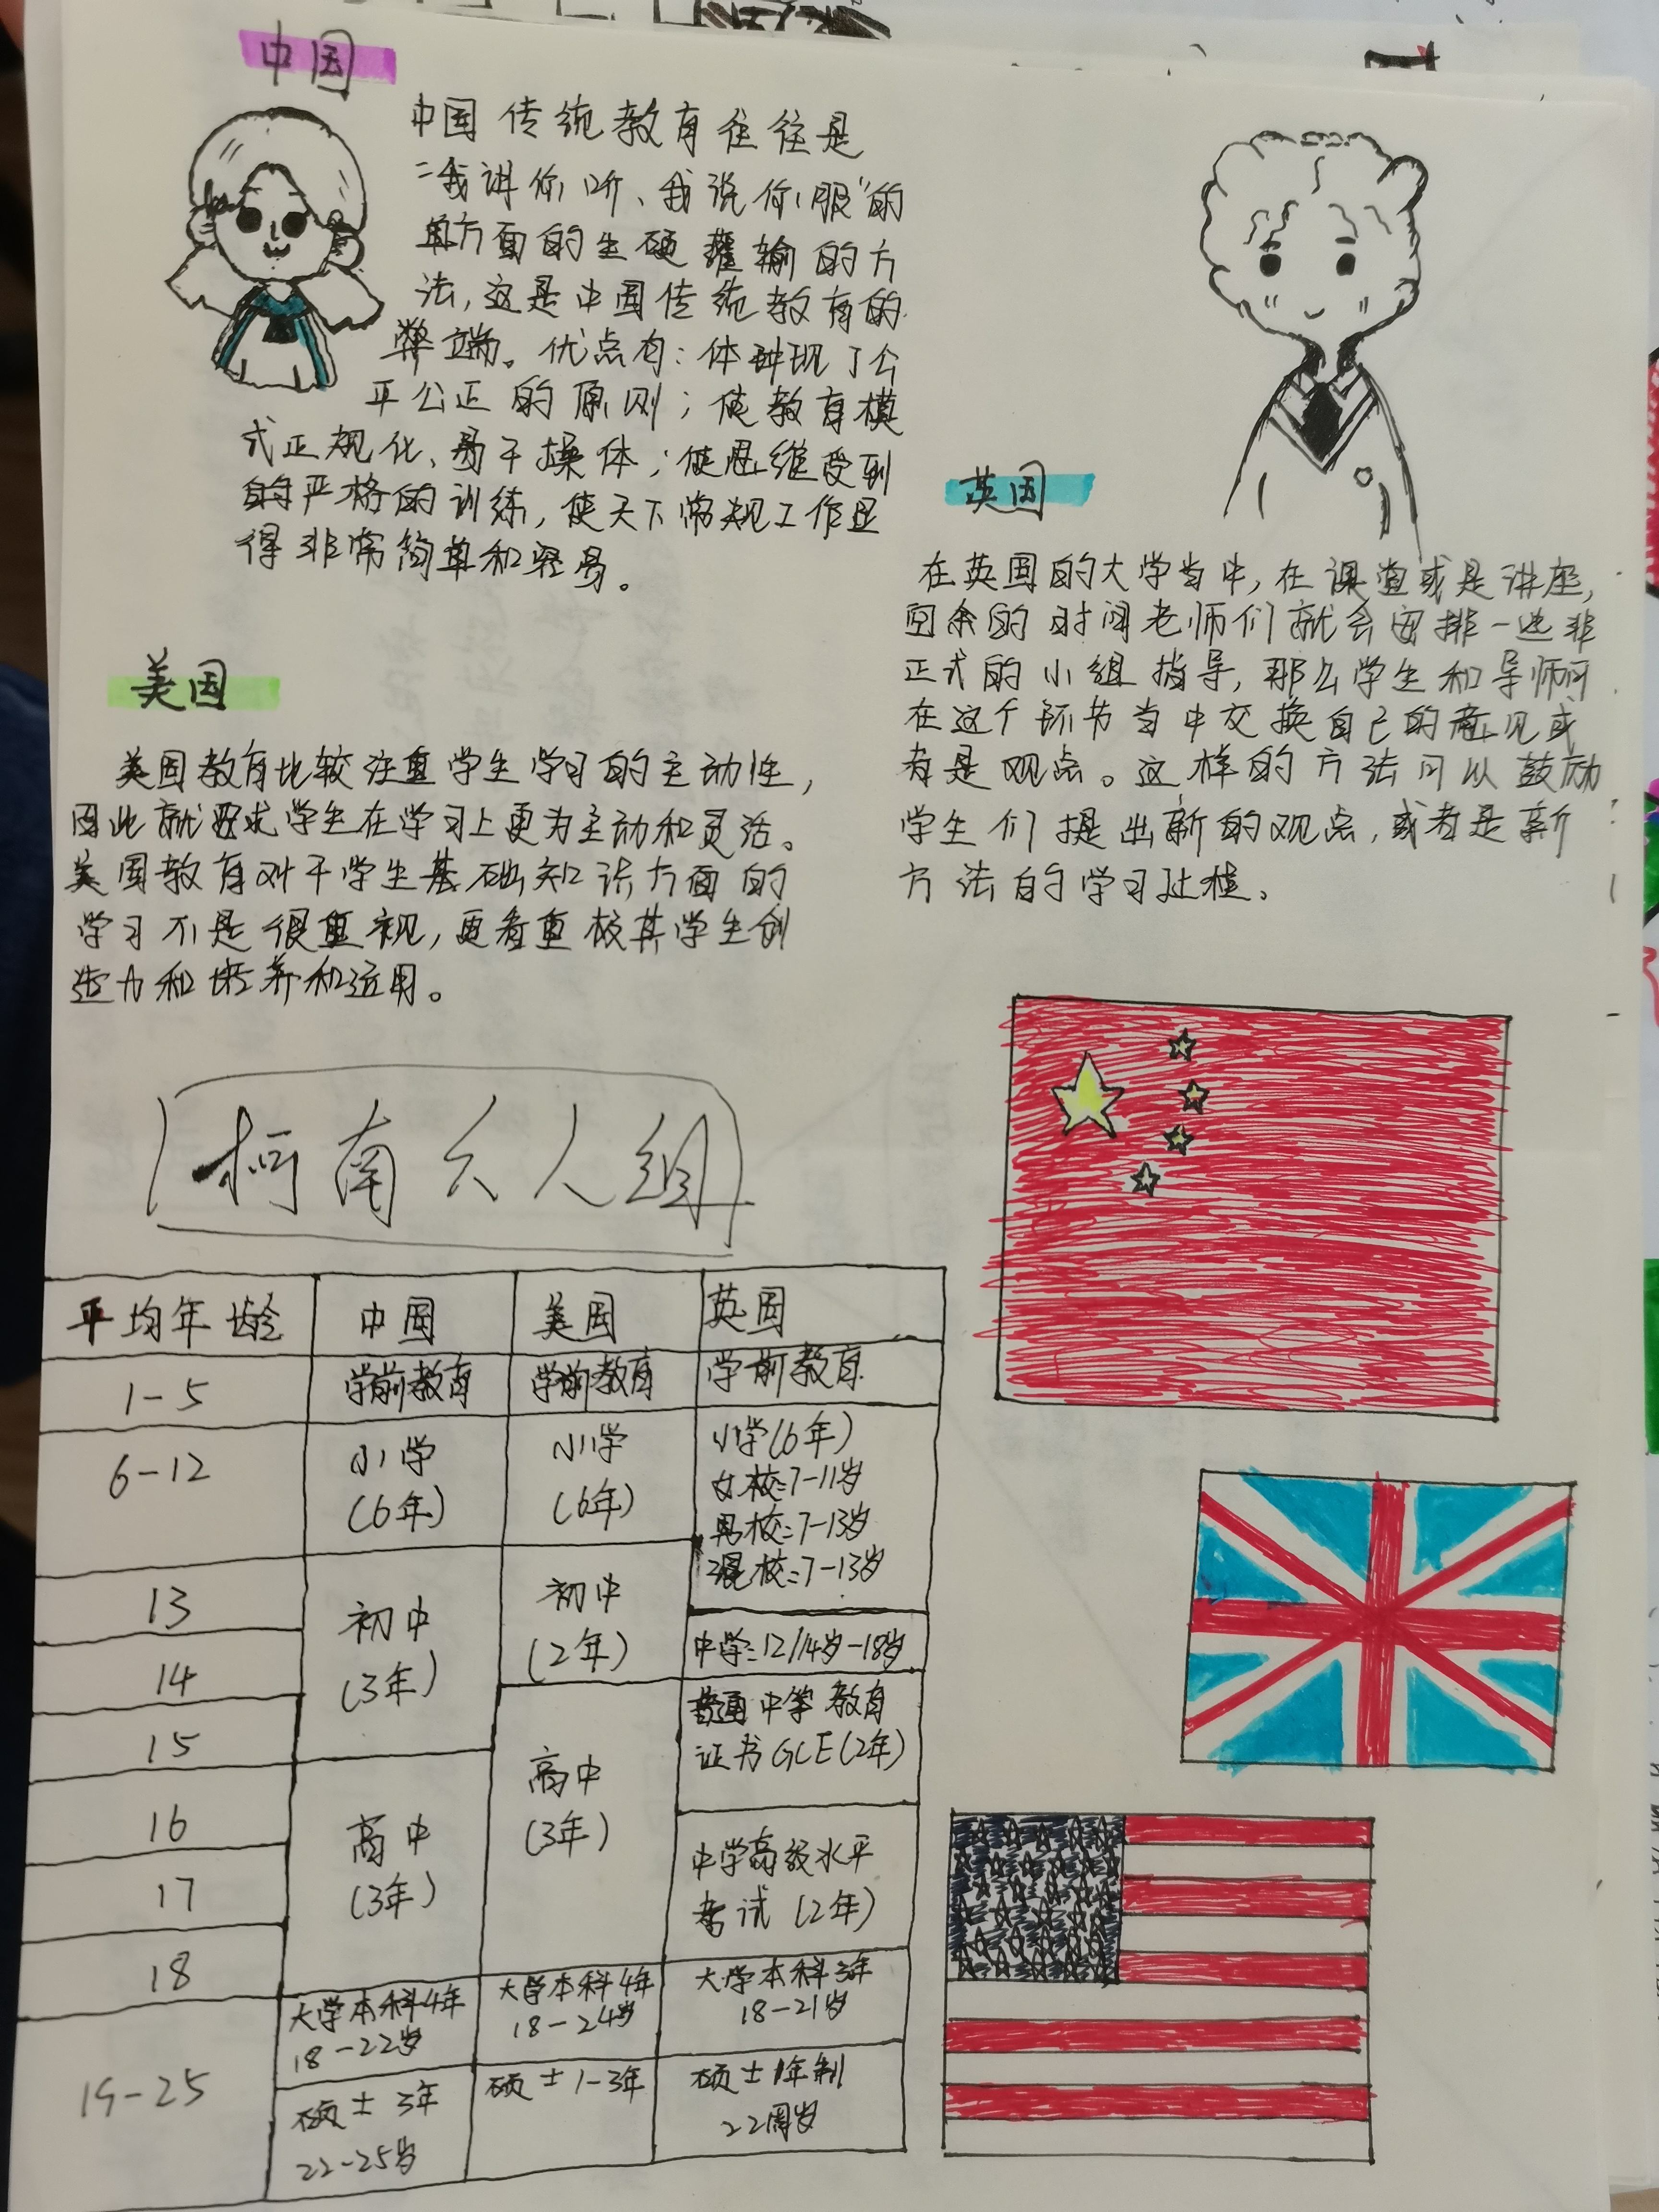 中国
中国传统教育往往是
“我讲你听、我说你服”的
单方面的生硬灌输的方
法，这是中国传统教育的
弊端。优点有：体现了公
平公正的原则；使教育模
式正规化、易于操体；使思维受到
的严格的训练，使天下常规工作显
得非常简单和容易。
英国
在英国的大学当中，在课堂或是讲座，
空余的时间老师们就会安排一些非
正式的小组指导，那么学生和导师可
在这个环节当中交换自己的意见或
者是观点。这样的方法可以鼓励
学生们提出新的观点，或者是新
方法的学习过程。
美国
美国教育比较注重学生学习的主动性，
因此就要求学生在学习上更为主动和灵活。
美国教育对于学生基础知识方面的
学习不是很重视，更看重校其学生创
造力和培养和运用。
柯南六人组
平均年龄 中国 美国 英国
1-5 学前教育 学前教育 学前教育
6-12 小学 小学 小学(6年)
(6年) (6年) 女校:7-11岁
男校:7-13岁
混校:7-13岁
13 初中 初中
(3年) (2年) 中学:12/14岁-18岁
14
15 高中 普通中等教育
(3年) 证书GCE(2年)
16 高中 中学高级水平
17 (3年) 考试(2年)
18
大学本科4年 大学本科4年 大学本科3年
18-22岁 18-24岁 18-21岁
19-25 硕士3年 硕士1-3年 硕士1年制
22-25岁 22周岁